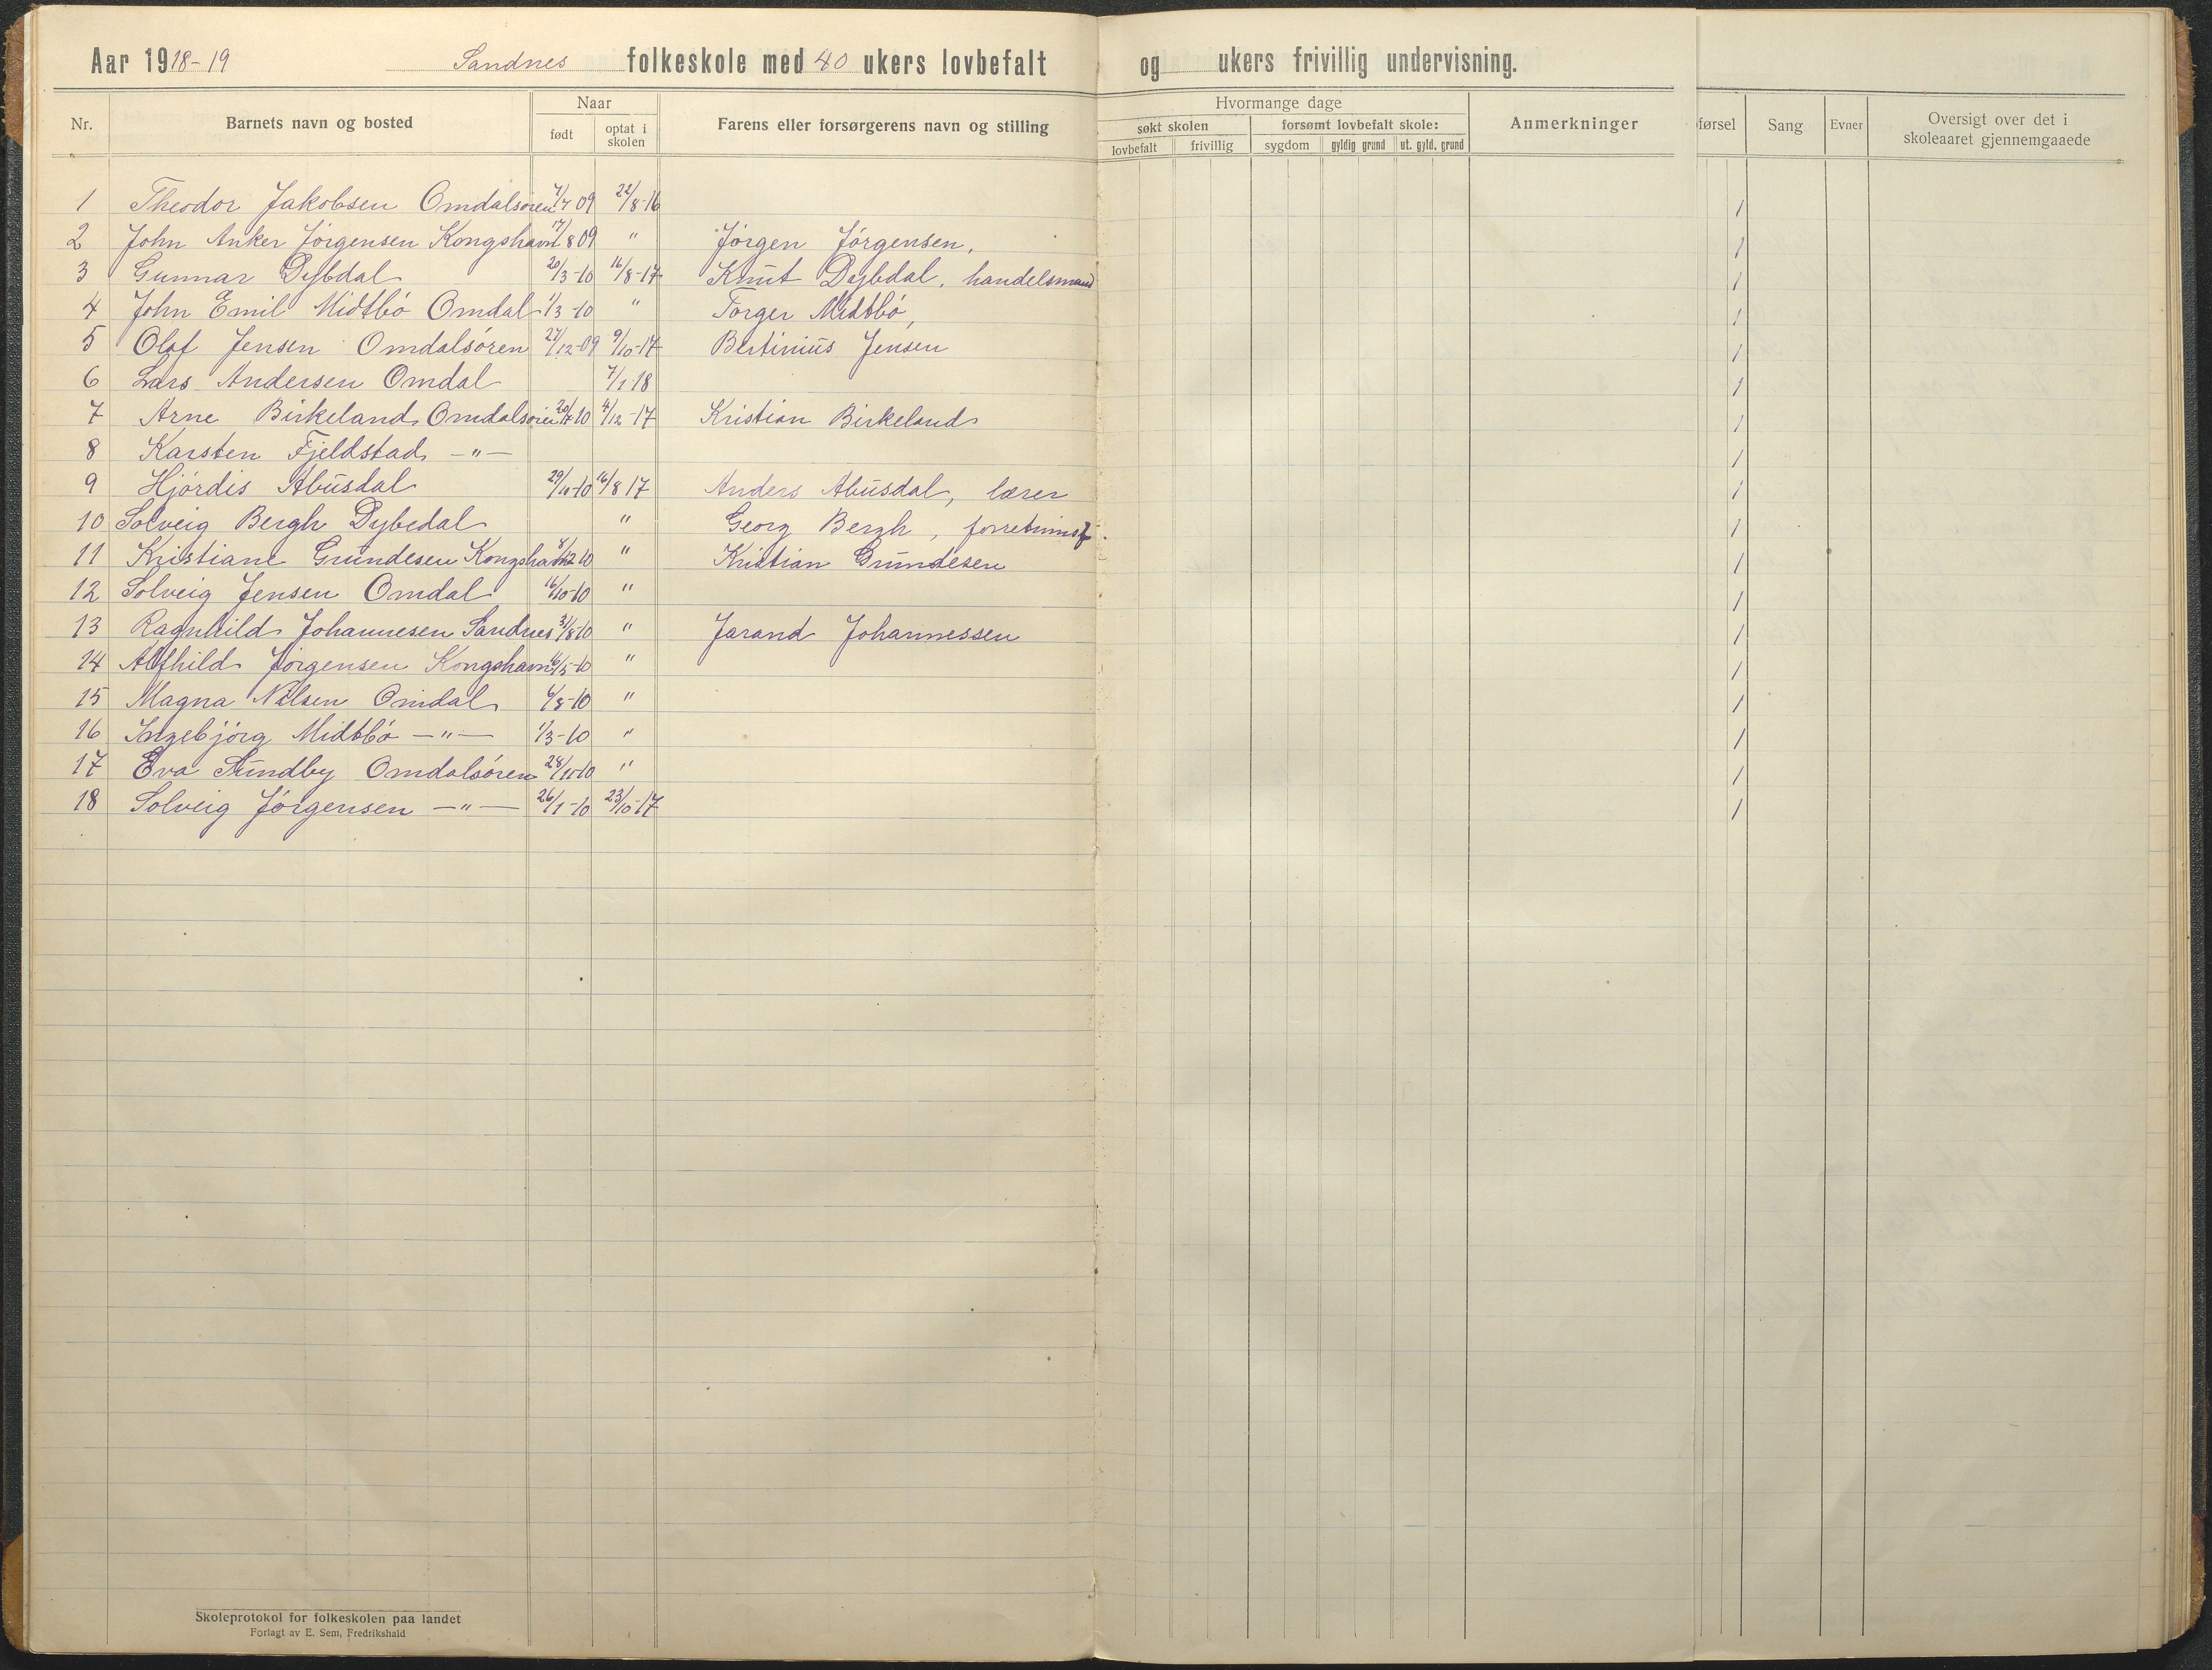 Aar 1918-19 Sandnes folkeskole med 40 ukers lovbefalt og ukers frivillig undervisning.
Nr. Barnets navn og bosted Naar født optat i skolen Farens eller forsørgerens navn og stilling Hvormange dage søkt skolen lovbefalt frivillig forsømt lovbefalt skole: sygdom gyldig grund ut. gyld. grund Anmerkninger førsel Sang Evner Oversigt over det i skoleaaret gjennemgaaede
1 Theodor Jakobsen Omdalsøren 7/7 09 22/8-16 1
2 John Anker Jørgensen Kongshavn 17/8 09 " Jørgen Jørgensen, 1
3 Gunnar Dybdal 20/3-10 16/8-17 Knut Dybdal, handelsmand 1
4 John Emil Midtbö Omdal 1/3-10 " Torger Midtbö, 1
5 Olaf Jensen Omdalsören 27/12-09 9/10-17 Bertinius Jensen 1
6 Lars Andersen Omdal 7/1 18 1
7 Arne Birkeland Omdalsören 10 4/12-17 Kristian Birkeland 1
8 Karsten Fjeldstad -"- 1
9 Hjördis Abusdal 29/10-10 16/8 17 Anders Abusdal, lærer 1
10 Solveig Bergh Dybedal " Georg Bergh, forretningsf. 1
11 Kristiane Gundesen Kongshavn 8/12 10 " Kristian Gundesen 1
12 Solveig Jensen Omdal 16/10-10 " 1
13 Ragnhild Johannesen Sandnes 31/8-10 " Jarand Johannessen 1
14 Alfhild Jörgensen Kongshavn 16/5-10 " 1
15 Magna Nilsen Omdal 6/8-10 " 1
16 Ingebjörg Midtbö -"- 1/3-10 " 1
17 Eva Sundby Omdalsören 28/10-10 " 1
18 Solveig Jörgensen -"- 26/1-10 23/10-17 1
Skoleprotokol for folkeskolen paa landet
Forlagt av E. Sem, Fredrikshald